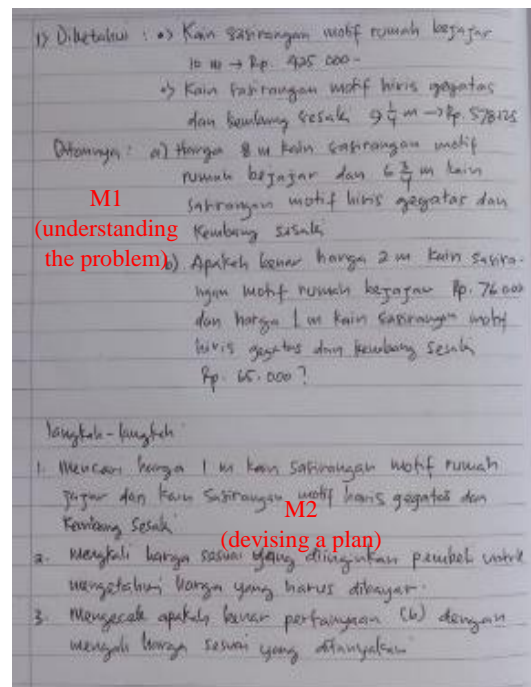 1) Diketahui : •) Kain sasirangan motif rumah bejajar
10 m → Rp. 425.000-
•) Kain sasirangan motif hiris gagatas
dan kembang sesaki 9 1/4 m → Rp. 578125
Ditanya : a) Harga 8 m kain sasirangan motif
rumah bejajar dan 6 3/4 m kain
sasirangan motif hiris gegatas dan
Kembang sasaki
M1
(understanding
the problem)
b) Apakah benar harga 2 m kain sasira-
ngan motif rumah bejajar Rp. 76.000
dan harga 1 m kain sasirangan motif
hiris gegatas dan kembang sesaki
Rp. 65.000 ?
langkah-langkah
1. Mencari harga 1 m kain sasirangan motif rumah
jajar dan kain sasirangan motif haris gegatas dan
Kembang Sesaki
M2
(devising a plan)
2. mengkali harga sesuai yang diinginkan pembeli untuk
mengetahui harga yang harus dibayar.
3. Mengecek apakah benar pertanyaan (b) dengan
mengali harga sesuai yang ditanyakan